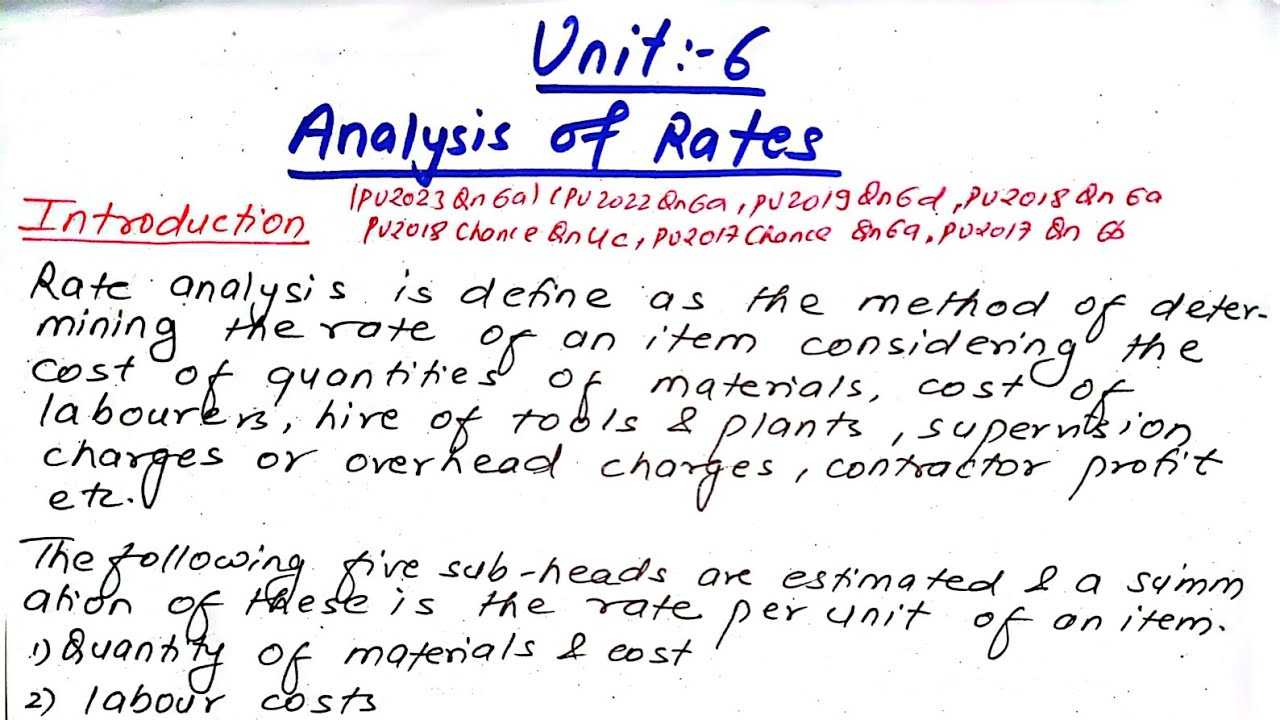 Unit:-6
Analysis of Rates
Introduction
(PU2023 Qn 6a) (PU2022 Qn6a, PU2019 Qn6d, PU2018 Qn 6a
PU2018 Chance Qn4c, PU2017 Chance Qn6a, PU2017 Qn 6b
Rate analysis is define as the method of deter-
mining the rate of an item considering the
cost of quantities of materials, cost of
labourers, hire of tools & plants, supervision
charges or overhead charges, contractor profit
etc.
The following five sub-heads are estimated & a summ
ation of these is the rate per unit of an item.
1) Quantity of materials & cost
2) labour costs